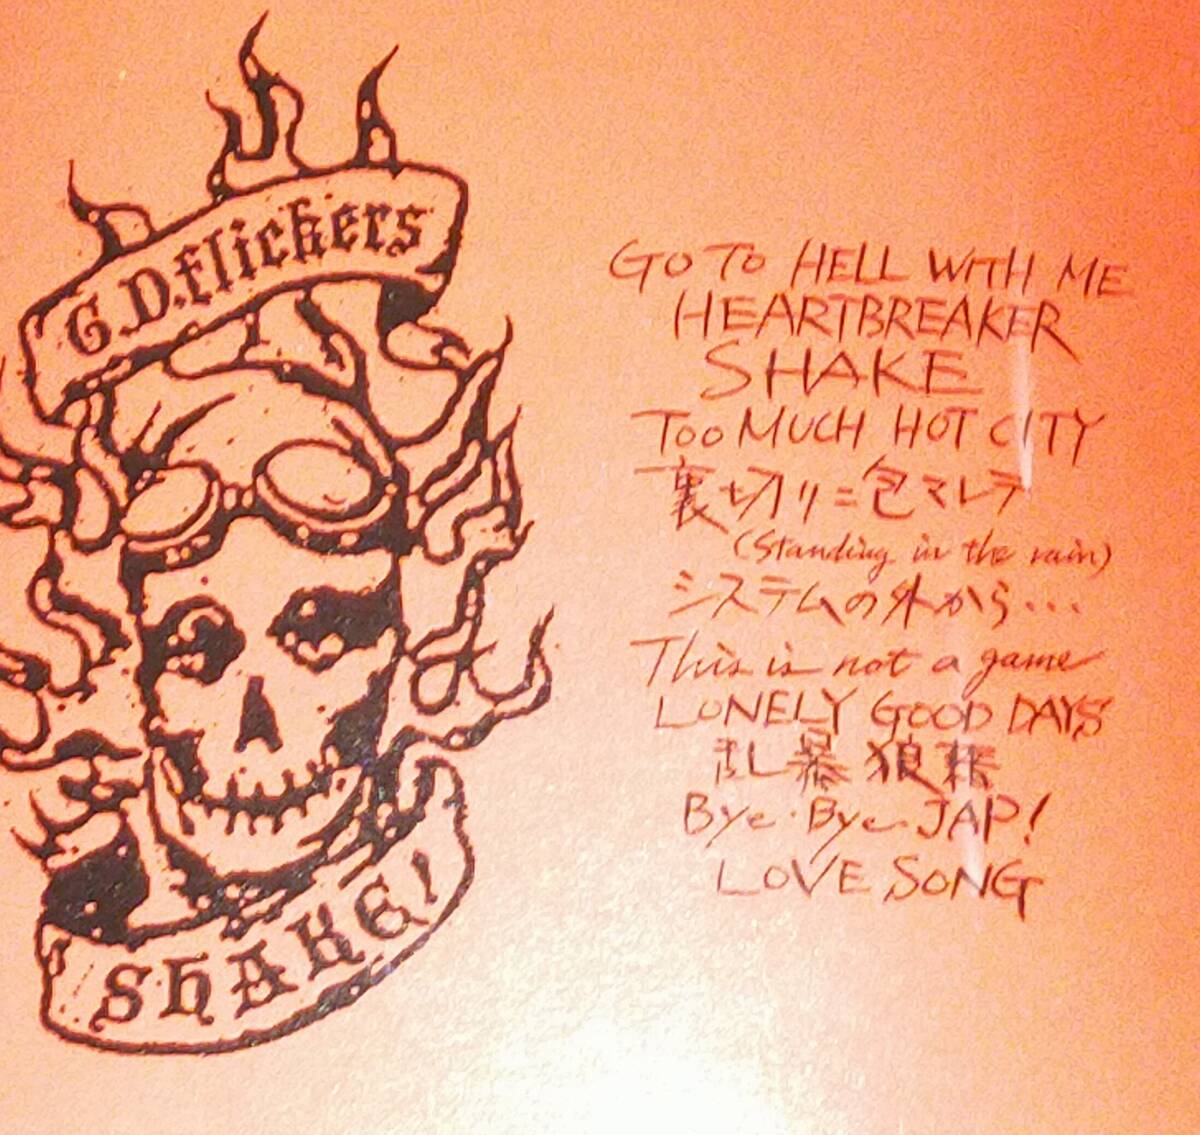 G.D.flickers
GO TO HELL WITH ME
HEARTBREAKER
SHAKE
TOO MUCH HOT CITY
裏切リニ包マレテ
(Standing in the rain)
システムの外から...
This is not a game
LONELY GOOD DAYS
乱暴狼藉
Bye・Bye JAP!
LOVE SONG
ShAKE!